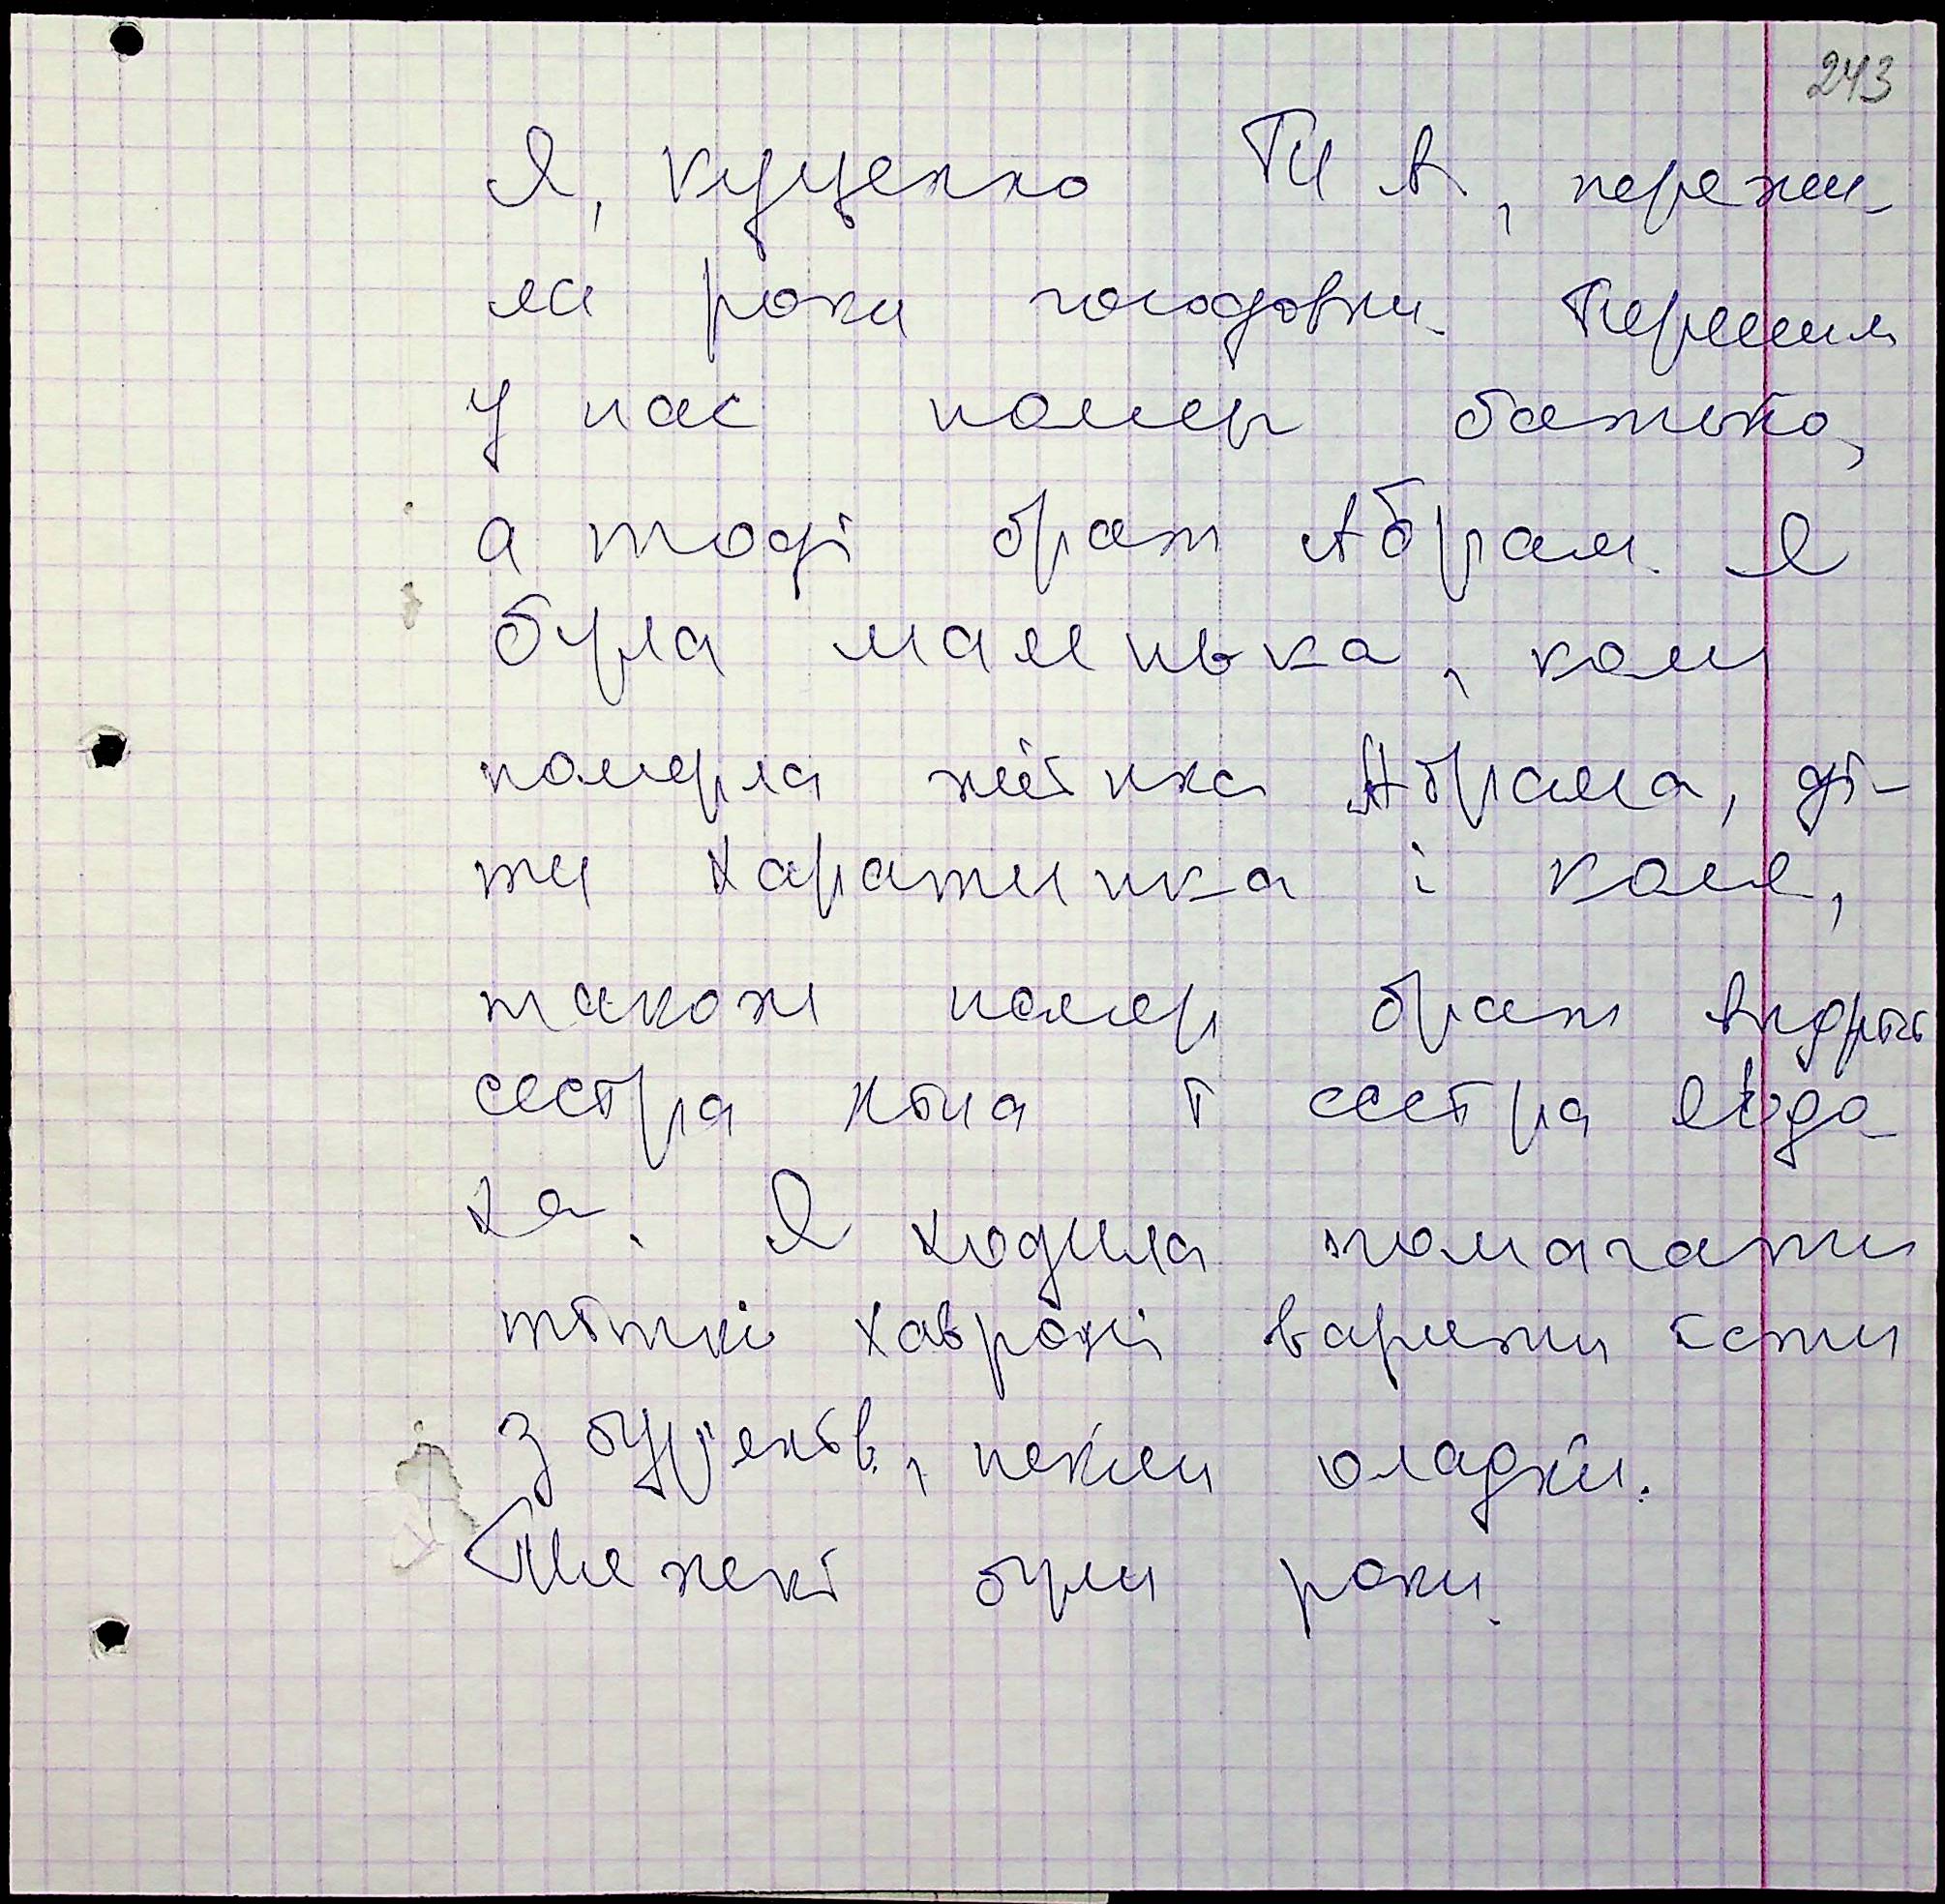 243
Я, Куценко П А, пережи-
ла роки голодовки. Першим
у нас помер батько,
а тоді брат Абрам. Я
була маленька, коли
померла жінка Абрама, ді-
ти Харатинка і Коля,
також помер брат Андрій
сестра Ніна і сестра Явдо-
ха. Я ходила помагати
тіткі Хавроні варити їсти
з буряків, пекли оладки.
Тяжкі були роки.